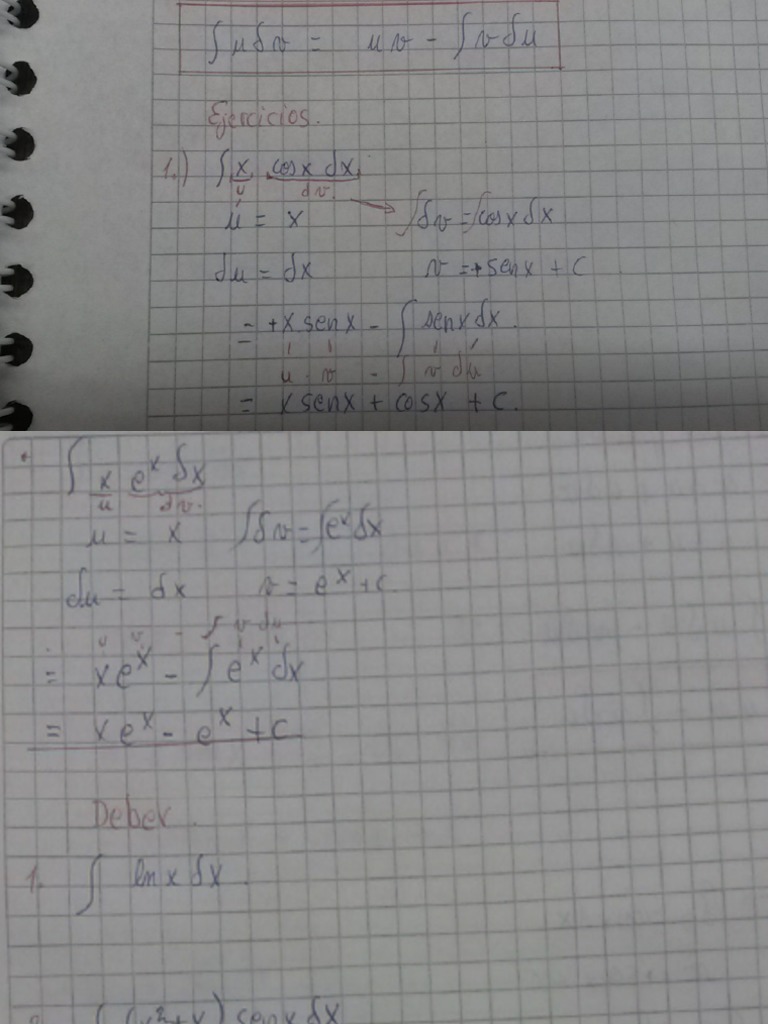 ∫ u dv = uv - ∫ v du
Ejercicios.
1.) ∫ x cosx dx
u dv.
u = x ∫dv = ∫cosx dx
du = dx v = +senx + C
= +x senx - ∫ senx dx.
u v - ∫ v du
= x senx + cosx + C.
∫ x e^x dx
u dv.
u = x ∫dv = ∫e^x dx
du = dx v = e^x + c
u v - ∫ v du
= x e^x - ∫ e^x dx
= x e^x - e^x + C
Deber.
1. ∫ ln x dx.
∫ (x²+x) senx dx